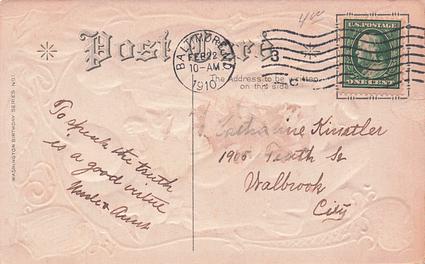 Post Card
BALTIMORE, MD
FEB 22
10-AM
1910
3
U.S. POSTAGE
ONE CENT
The address to be written
on this side
WASHINGTON BIRTHDAY SERIES NO 1
To speak the truth
is a good virtue
Uncle & Aunt
Katharine Kinstler
1905 Tenth St
Walbrook
City